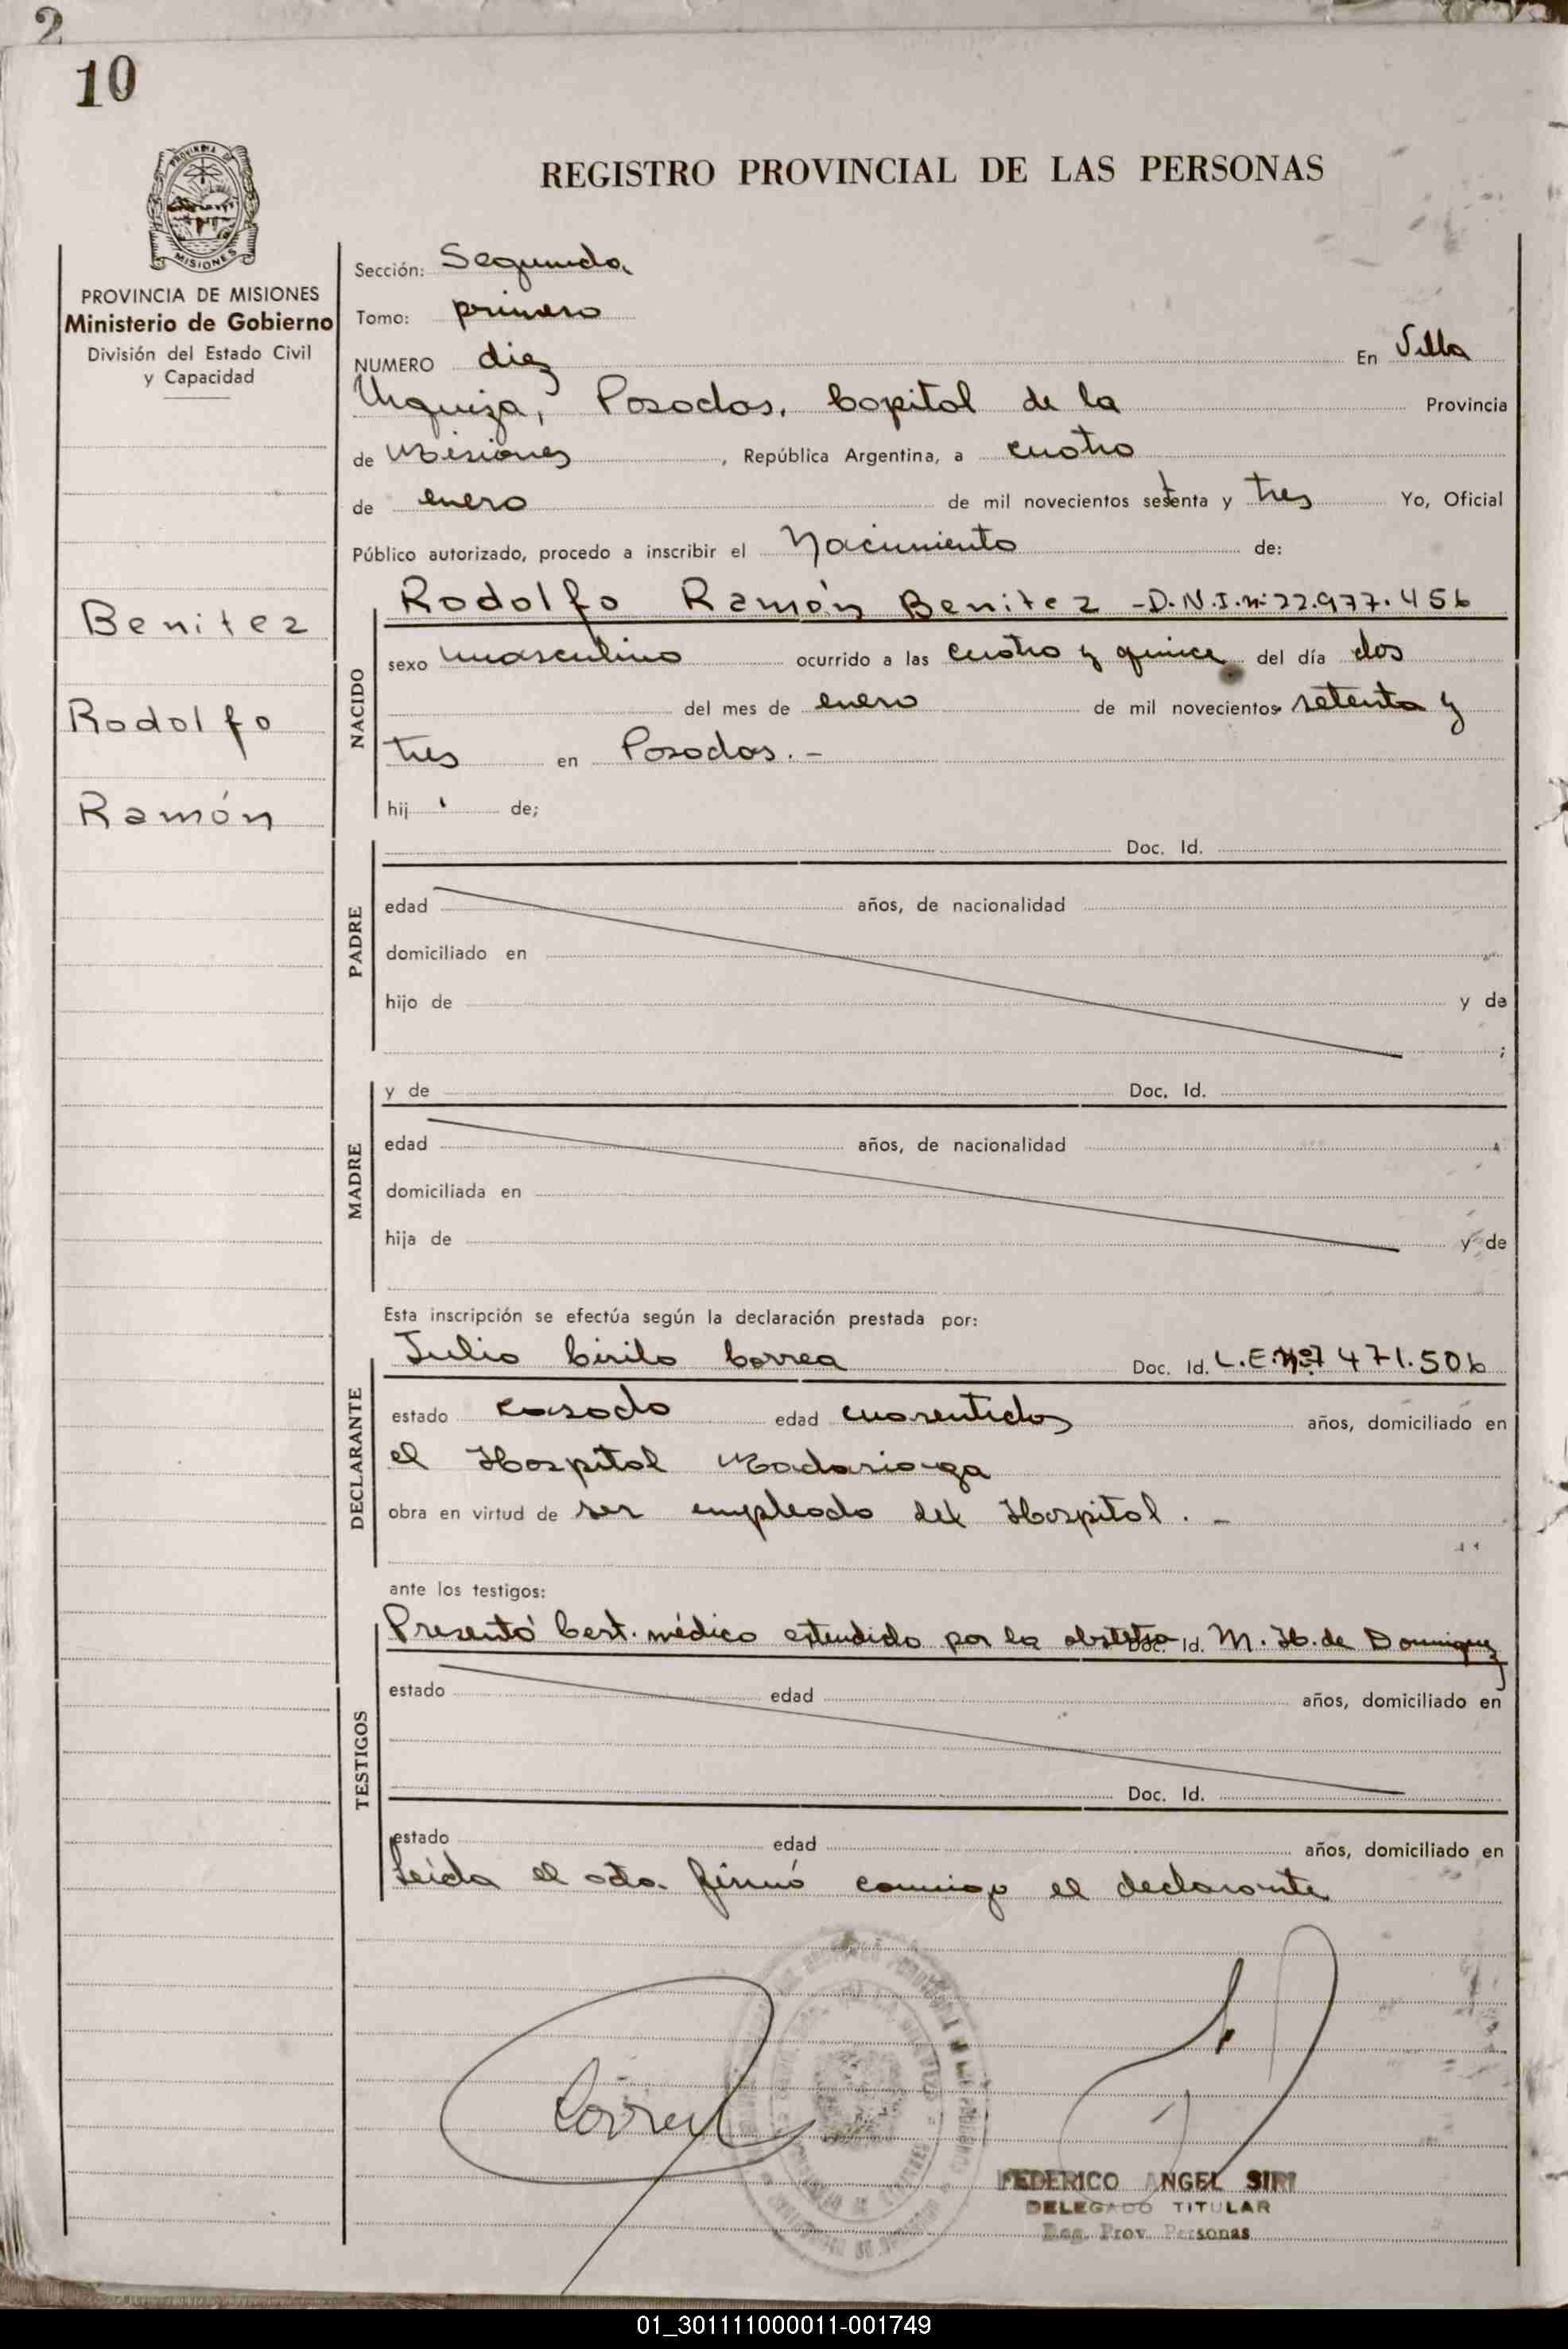 2
10
PROVINCIA DE MISIONES
MISIONES
PROVINCIA DE MISIONES
Ministerio de Gobierno
División del Estado Civil
y Capacidad
Benitez
Rodolfo
Ramón
REGISTRO PROVINCIAL DE LAS PERSONAS
Sección: Segunda
Tomo: primero
NUMERO diez En Villa
Urquiza, Posadas, Capital de la Provincia
de Misiones, República Argentina, a cuatro
de enero de mil novecientos setenta y tres Yo, Oficial
Público autorizado, procedo a inscribir el Nacimiento de:
NACIDO
Rodolfo Ramón Benitez -D.N.I.nº 22.977.456
sexo masculino ocurrido a las cuatro y quince del día dos
del mes de enero de mil novecientos setenta y
tres en Posadas.-
hij de;
PADRE
Doc. Id.
edad años, de nacionalidad
domiciliado en
hijo de y de
;
MADRE
y de Doc. Id.
edad años, de nacionalidad
domiciliada en
hija de y de
Esta inscripción se efectúa según la declaración prestada por:
DECLARANTE
Julio Cirilo Correa Doc. Id. L.E.Nº7 471.506
estado casado edad cuarentidos años, domiciliado en
el Hospital Madariaga
obra en virtud de ser empleado del Hospital.-
ante los testigos:
TESTIGOS
Presentó Cert. médico extendido por la obstetra Doc. Id. M. H. de Dominguez
estado edad años, domiciliado en
Doc. Id.
estado edad años, domiciliado en
Leída el acta firmó conmigo el declarante
Correa
FEDERICO ANGEL SIRI
DELEGADO TITULAR
Reg. Prov. Personas
01_301111000011-001749